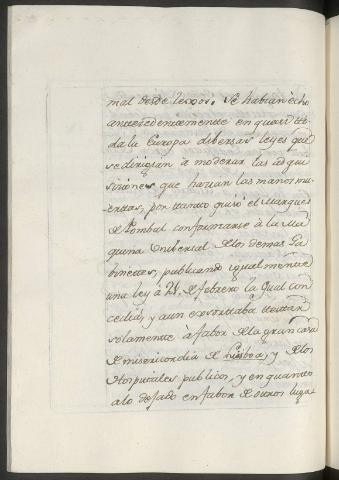 mal desde lexos. Se habian echo
antecedentemente en quasi to-
da la Europa dibersas leyes que
se dirigian à moderar las adqui
siziones que hazian las manos mu-
ertas, por tanto quiso el Marques
de Pombal conformarse à la Ma
quina Unibersal de los demas Ga
binettes, publicando igualmente
una ley à 21 de febrero la qual con
cedia, y aun exortaba testar
solamente à fabor de la gran casa
de misericordia de Lisboa, y de los
Hospitales publicos, y en quanto
a lo dejado en fabor de otros luga-